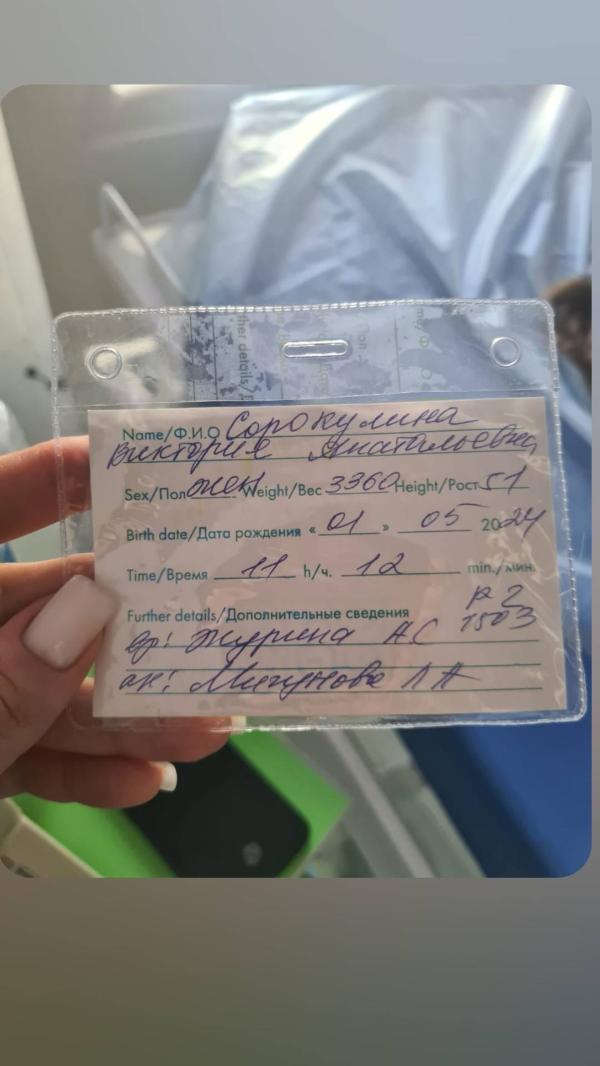 Name/Ф.И.О Сорокулина
Виктория Анатальевна
Sex/Пол жен Weight/Вес 3360 Height/Рост 51
Birth date/Дата рождения « 01 » 05 2024
Time/Время 11 h/ч. 12 min./мин.
Further details/Дополнительные сведения р 2
вр! Журина А.С 1503
ак! Мигунова Л А